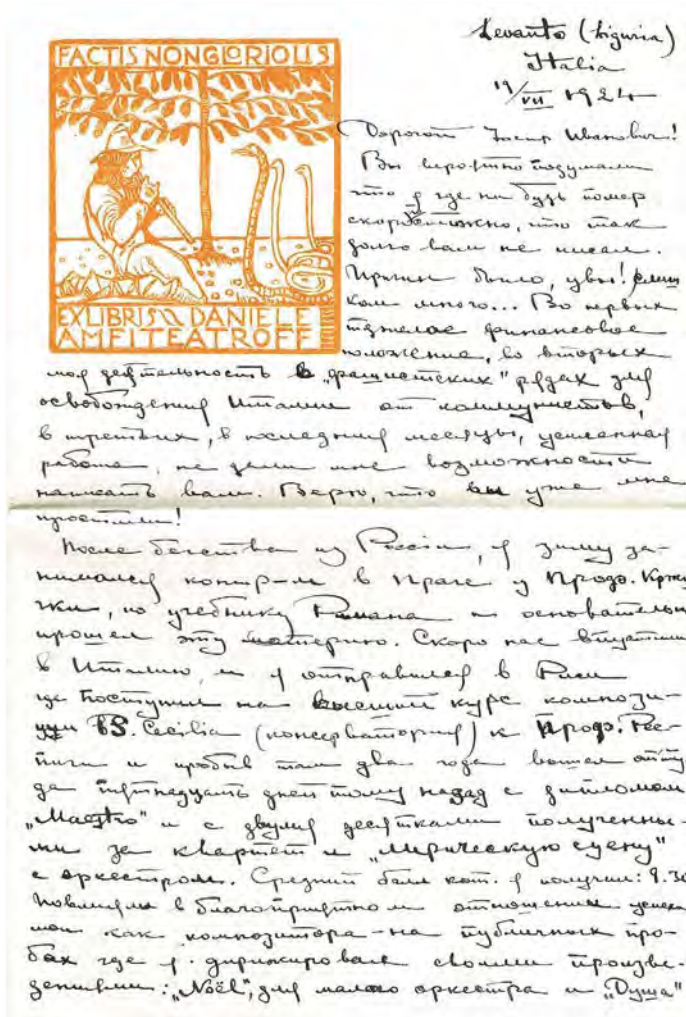 FACTIS NON GLORIOLIS
EX LIBRIS DANIELE
AMFITEATROFF
Levanto (Liguria)
Italia
19/VII 1924
Дорогой Иванович!
Вы вероятно подумали
что я где нибудь помер
что так
долго вам не писал.
Причин было, увы! слиш
ком много... Во первых
тяжелое финансовое
положение, во вторых
моя деятельность в „фашистских" рядах для
освобождения Италии от коммунистов,
в третьих, в последния месяцы, усиленная
работа, не дали мне возможности
написать вам. Верю, что вы уже мне
простили!
После бегства из России, я зиму за-
нимался контр-м в Праге у Проф. Кржи
жки, по учебнику Римана и основательно
прошел эту материю. Скоро нас впустили
в Италию, и я отправился в Рим
где поступил на высший курс компози-
ции в S. Cecilia (консерватория) к Проф. Рес-
пиги и пробыв там два года вышел отту-
да пятнадцать дней тому назад с дипломом
„Maestro" и с двумя десятками полученны-
ми за квартет и „лирическую сцену"
с оркестром. Средний балл кот. я получил: 9.30
Повлияли в благоприятном отношении успехи
мои как композитора - на публичных про-
бах где я дирижировал своими произве-
дениями: „Noël", для малого оркестра и „Душа"